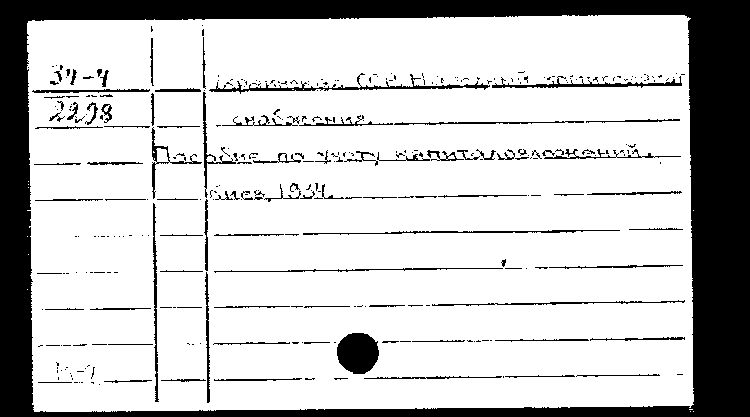 34-4
2298
Украинская ССР. Народный комиссариат
снабжения.
Пособие по учету капиталовложений.
Киев, 1934.